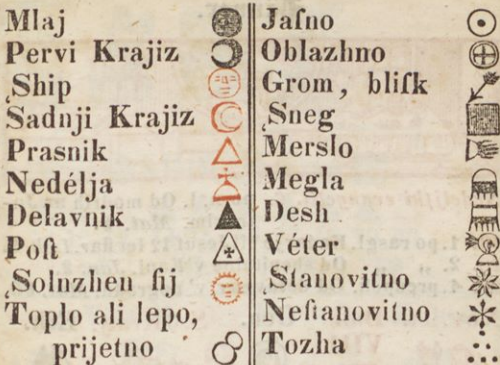 Mlaj
Pervi Krajiz
ˌShip
Sadnji Krajiz
Prasnik
Nedélja
Delavnik
Poſt
ˌSolnzhen ſij
Toplo ali lepo,
prijetno
Jaſno
Oblazhno
Grom, bliſk
ˌSneg
Merslo
Megla
Desh
Véter
Stanovitno
Neſtanovitno
Tozha